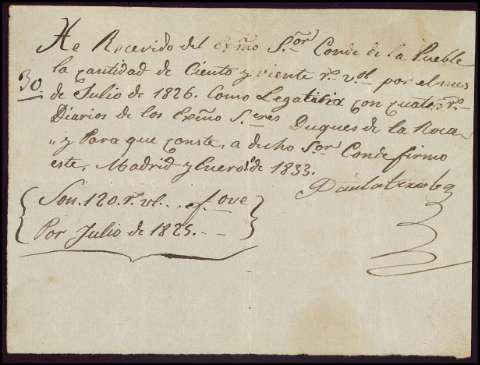 He Recevido del Exmo S.or Conde de la Puebla
30. la cantidad de Ciento y veinte r.s v.on por el mes
de Julio de 1826. Como Legataria con quatro r.s
Diarios de los Exmo S.eres Duques de la Roca
y Para que conste, a decho S.or Conde firmo
este, Madrid y Enero de 1833.
Son. 120 r.s vn.
Por Julio de 1825.